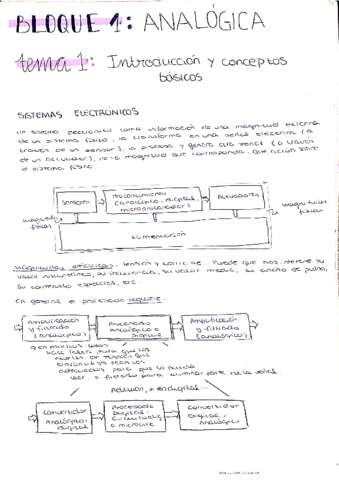 BLOQUE 1: ANALÓGICA
tema 1: Introducción y conceptos
básicos
SISTEMAS ELECTRÓNICOS
un sistema electrónico toma información de una magnitud externa
de un sistema físico, la transforma en una señal eléctrica (a
través de un sensor), la procesa y genera otra señal (a través
de un actuador), de la magnitud que corresponda, que
el sistema físico.
Sensores
Procesamiento
(analógico, digital,
microprocesador)
Actuadores
magnitudes
físicas
magnitudes
físicas
alimentación
Magnitudes eléctricas: tensión y corriente. Puede que nos interese su
valor instantáneo, su frecuencia, su valor medio, su ancho de pulso,
su contenido espectral, etc.
En general el procesado requiere...
Amplificación
y filtrado
(analógico)
Procesado
Analógico o
Digital
Amplificación
y filtrado
(analógico)
en muchos casos
para que los
niveles de tensión que
sean los
adecuados para que lo pueda
o filtrarlo para eliminar parte de la señal.
Además, si es digital...
Convertidor
Analógico/
digital
Procesado
Digital:
o micropr.
Convertidor
Digital/
Analógico